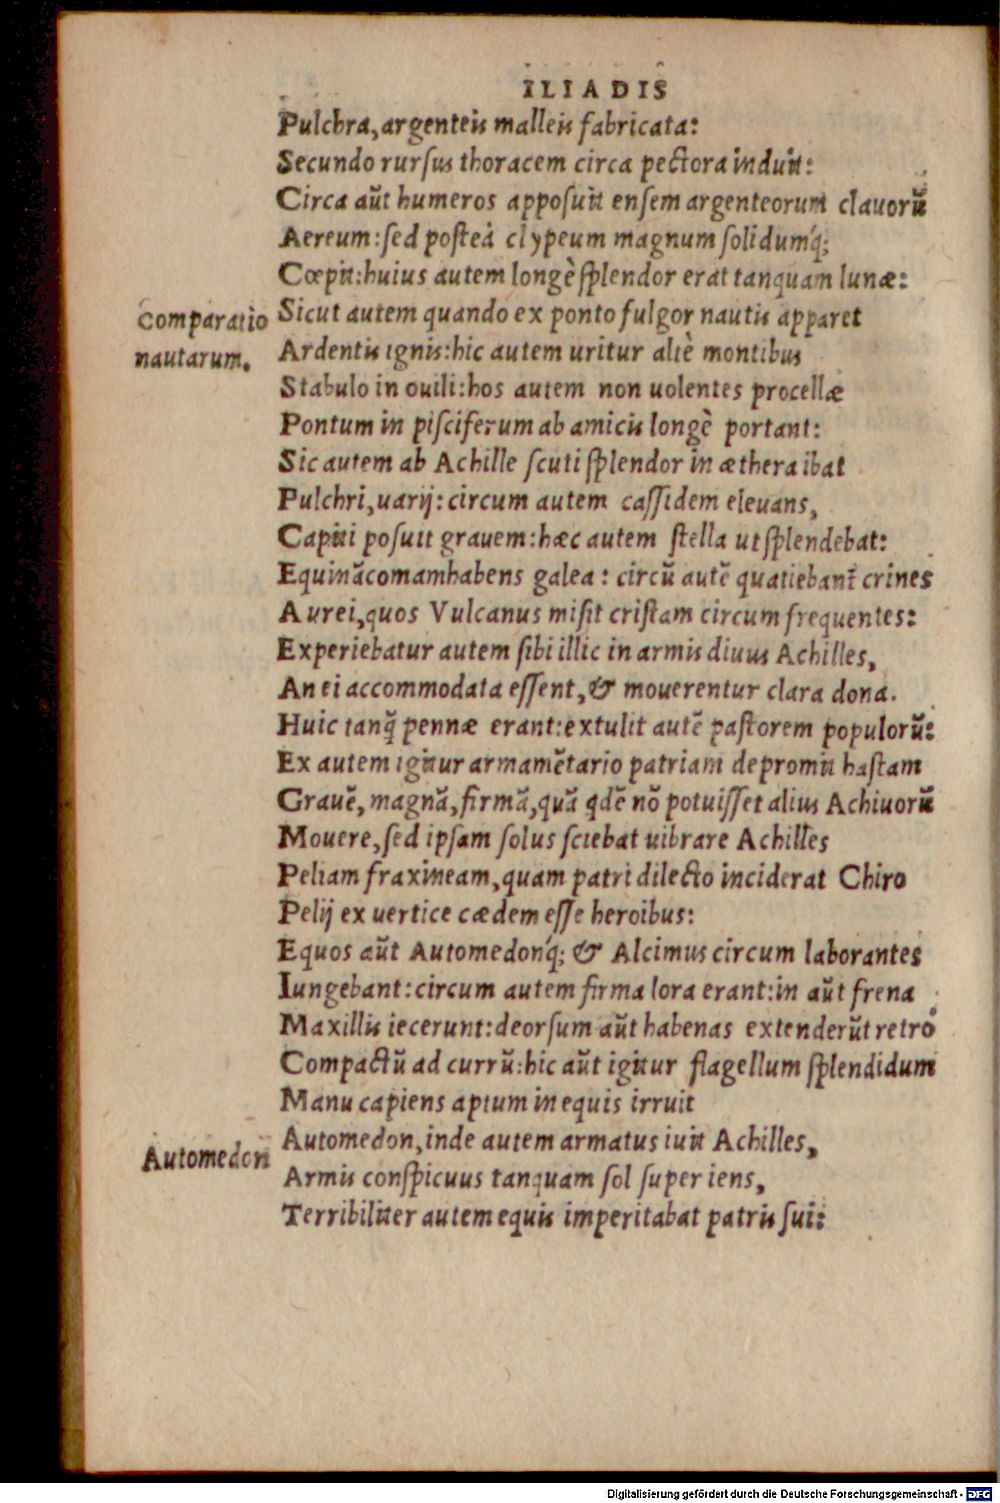 ILIADIS
Pulchra, argenteis malleis fabricata:
Secundo rursus thoracem circa pectora induit:
Circa aũt humeros apposuit ensem argenteorum clauorũ
Aereum: sed posteà clypeum magnum solidumq́;
Cœpit: huius autem longè splendor erat tanquam lunæ:
Comparatio nautarum.
Sicut autem quando ex ponto fulgor nautis apparet
Ardentis ignis: hic autem uritur altè montibus
Stabulo in ouili: hos autem non uolentes procellæ
Pontum in pisciferum ab amicis longè portant:
Sic autem ab Achille scuti splendor in æthera ibat
Pulchri, uarij: circum autem cassidem eleuans,
Capiti posuit grauem: hæc autem stella ut splendebat:
Equinãcomamhabens galea: circũ autẽ quatiebant̃ crines
Aurei, quos Vulcanus misit cristam circum frequentes:
Experiebatur autem sibi illic in armis diuus Achilles,
An ei accommodata essent, & mouerentur clara dona.
Huic tanq̃ pennæ erant: extulit autẽ pastorem populorũ:
Ex autem igitur armamẽtario patriam depromit hastam
Grauẽ, magnã, firmã, quã qdẽ nõ potuisset alius Achiuorũ
Mouere, sed ipsam solus sciebat uibrare Achilles
Peliam fraxineam, quam patri dilecto inciderat Chiro
Pelij ex uertice cædem esse heroibus:
Equos aũt Automedonq́; & Alcimus circum laborantes
Iungebant: circum autem firma lora erant: in aũt frena
Maxillis iecerunt: deorsum aũt habenas extenderũt retrò
Compactũ ad currũ: hic aũt igitur flagellum splendidum
Manu capiens aptum in equis irruit
Automedon
Automedon, inde autem armatus iuit Achilles,
Armis conspicuus tanquam sol super iens,
Terribiliter autem equis imperitabat patris sui:
Digitalisierung gefördert durch die Deutsche Forschungsgemeinschaft - DFG